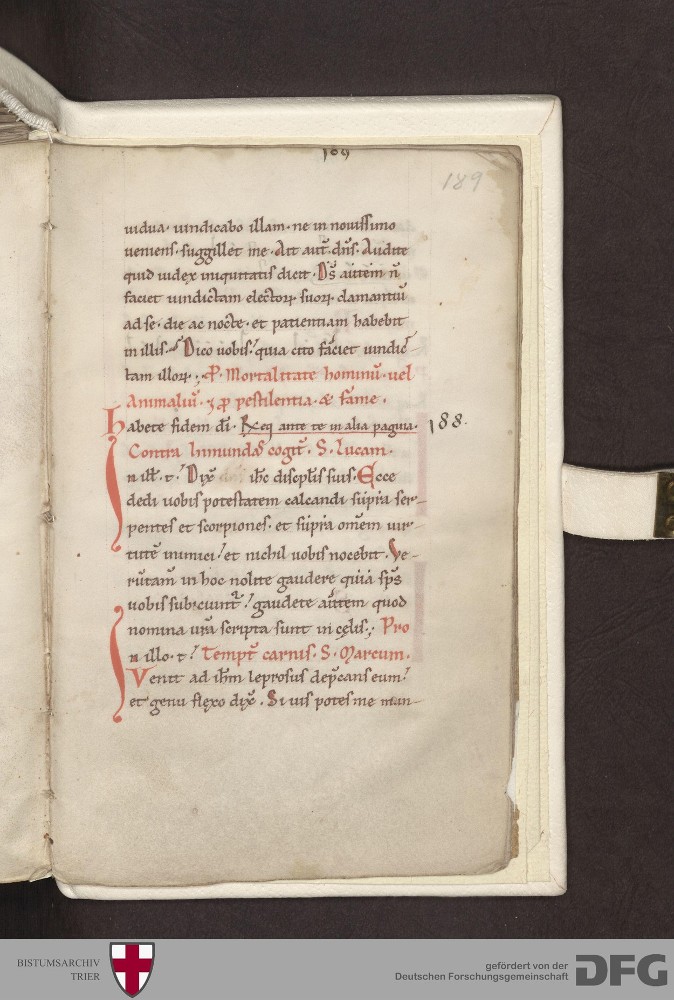 189
189
uidua. uindicabo illam. ne in nouissimo
ueniens. suggillet me. Ait aut̄. dn̄s. Audite
quid iudex iniquitatis dicit. Ds̄ autem n̄
faciet uindictam electorꝝ suorꝝ clamantiū
ad se. die ac nocte. et patientiam habebit
in illis. Dico uobis. quia cito faciet uindic-
tam illorꝝ. P. Mortalitate hominū. uel
Animaliū. ⁊ ꝓ pestilentia. & fame.
Habete fidem dī. Req̄ ante te in alia pagina. 188.
Contra Inmundas cogit̄. S. Lucam.
In ill̄. t. Dix̄ ih̄c discipl̄is suis. Ecce
dedi uobis potestatem calcandi supra ser-
pentes et scorpiones. et supra om̄em uir-
tutē inimici. et nichil uobis nocebit. Ve-
rūtam̄ in hoc nolite gaudere quia sp̄s
uobis subiciunt̄. gaudete autem quod
nomina ur̄a scripta sunt in cęlis. Pro
In illo. t. Tempt̄ carnis. S. Marcum.
Venit ad ih̄m leprosus dep̄cans eum.
et genu flexo dix̄. Si uis potes me mun-
BISTUMSARCHIV
TRIER
gefördert von der
Deutschen Forschungsgemeinschaft
DFG